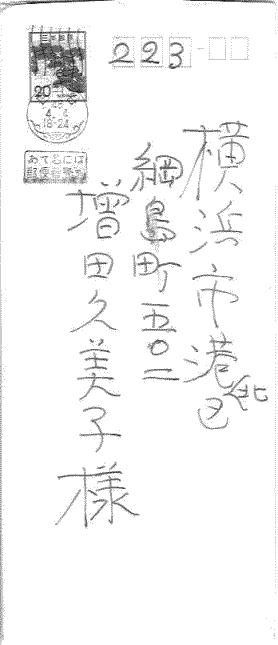 223
横浜市港北区
綱島町五〇二
増田久美子様
20
48
4.4
18-24
あて名には
郵便番号を